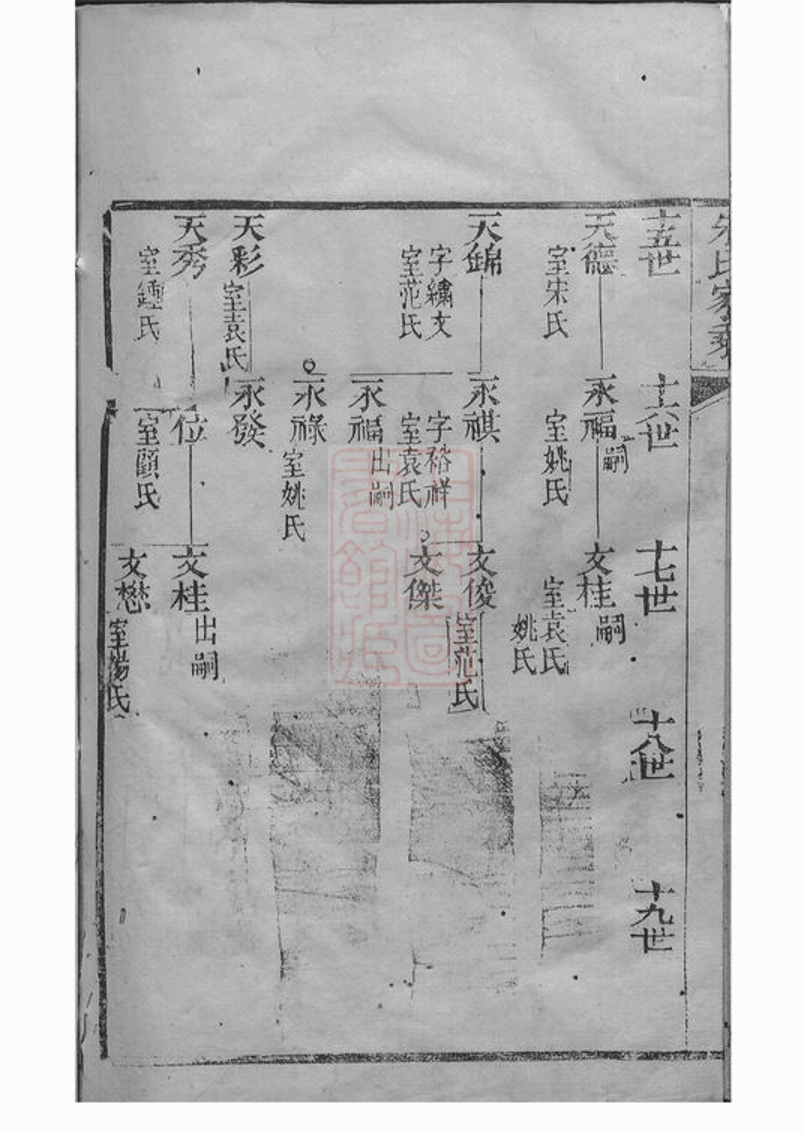 氏家乘
十五世
十六世
十七世
十八世
十九世
天德
室宋氏
永福
嗣
室姚氏
文桂
嗣
室袁氏
姚氏
天錦
字繡文
室范氏
永祺
字裕祥
室袁氏
文俊
室范氏
文傑
永福
出嗣
永祿
室姚氏
天彩
室袁氏
永發
天秀
室鍾氏
位
室顧氏
文桂
出嗣
文懋
室楊氏